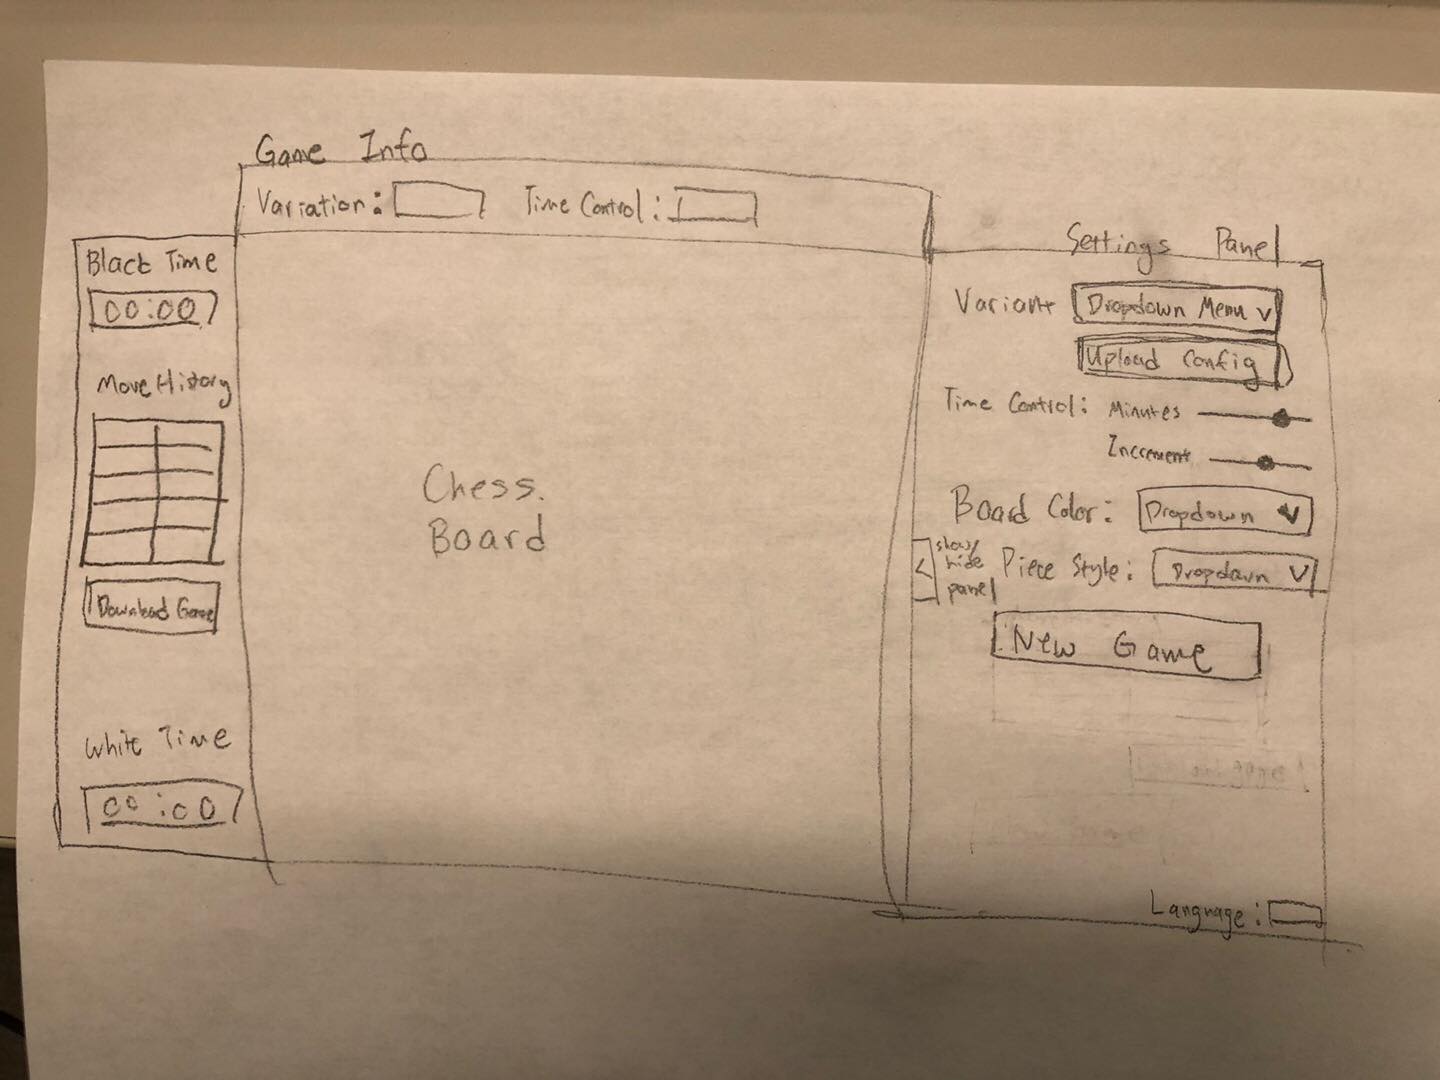 Game Info
Variation:
Time Control:
Black Time
00:00
Move History
Download Game
White Time
00:00
Chess.
Board
Settings Panel
Variant Dropdown Menu
Upload Config
Time Control: Minutes
Increment
Board Color: Dropdown
show/
hide
panel
Piece Style: Dropdown
New Game
Language: